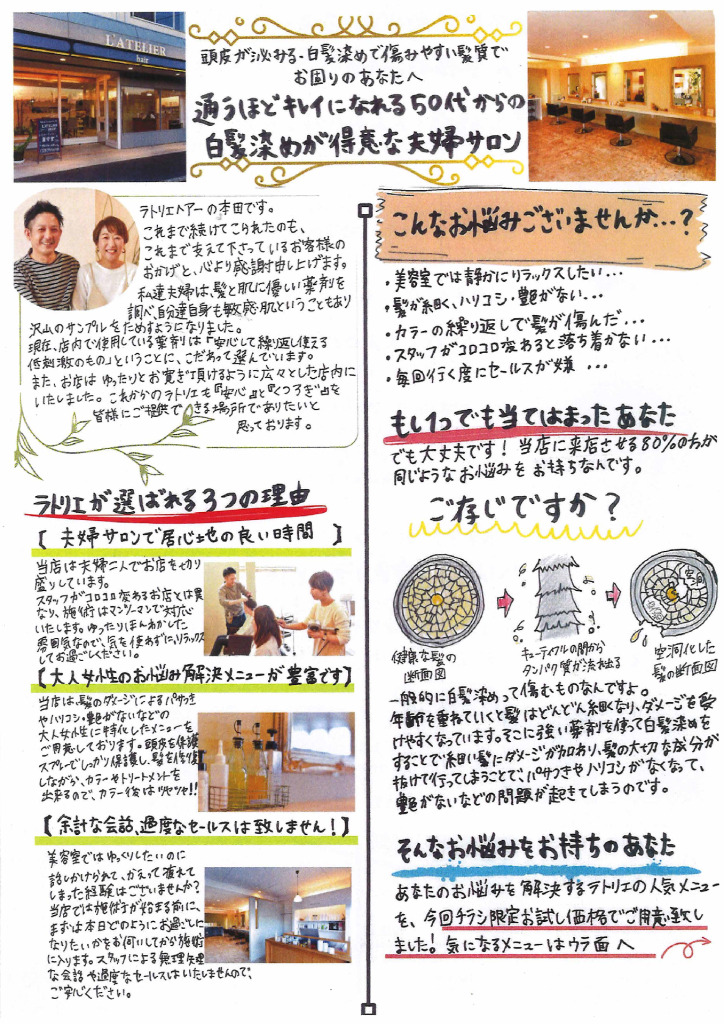 L'ATELIER
hair
頭皮がハ必みる・白髪染めで傷みやすい髪質で
お困りのあなたへ
通うほどキレイになれる50代からの
白髪染めが得意な夫婦サロン
ラトリエヘアーの本田です。
これまで続けてこられたのも、
これまで支えて下さっているお客様の
おかげと、心より感謝申し上げます。
私達夫婦は、髪と肌に優しい薬剤を
調べ、自分達自身も敏感肌ということもあり
沢山のサンプルをためすようになりました。
現在、店内で使用している薬剤は『安心して繰り返し使える
低刺激のもの』ということに、こだわって選んでいます。
また、お店は ゆったりとお寛ぎ頂けるように広々とした店内に
いたしました。これからのラトリエも『安心』と『くつろぎ』を
皆様にご提供できる場所でありたいと
思っております。
ラトリエが選ばれる3つの理由
【 夫婦サロンで居心地の良い時間 】
当店は夫婦二人でお店を切り
盛りしています。
スタッフがコロコロ変わるお店とは異
なり、施術はマンツーマンで対応
いたします。ゆったりほんわかした
雰囲気なので、気を使わずにリラックス
してお過ごしください。
【大人女性のお悩み解決メニューが豊富です】
当店は、髪のダメージによるパサつき
やハリコシ・艶がないなどの
大人女性に特化したメニューを
ご用意しております。頭皮を保護
スプレーでしっかり保護し、髪を修復
しながら、カラーやトリートメントを
出来るので、カラー後はツヤツヤ!!
【余計な会話、過度なセールスは致しません！】
美容室ではゆっくりしたいのに
話しかけられて、かえって疲れて
しまった経験はございませんか？
当店では施術が始まる前に、
まずは本日どのようにお過ごしに
なりたいかをお伺いしてから施術
に入ります。スタッフによる無理矢理
な会話や過度なセールスはいたしませんので、
ご安心ください。
こんなお悩みございませんか…？
・美容室では静かにリラックスしたい…
・髪が細く、ハリコシ・艶がない…
・カラーの繰り返しで髪が傷んだ…
・スタッフがコロコロ変わると落ち着かない…
・毎回行く度にセールスが嫌 …
もし1つでも当てはまったあなた
でも大丈夫です！当店に来店させる80%の方が
同じようなお悩みを お持ちなんです。
ご存じですか？
空洞
健康な髪の
断面図
キューティクルの間から
タンパク質が流れ出る
空洞化した
髪の断面図
一般的に白髪染めって傷むものなんですよ。
年齢を重ねていくと髪はどんどん細くなり、ダメージを受
けやすくなっています。そこに強い薬剤を使って白髪染めを
することで細い髪にダメージが加わり、髪の大切な成分が
抜けて行ってしまうことで、パサつきやハリコシがなくなって、
艶がないなどの問題が起きてしまうのです。
そんなお悩みをお持ちのあなた
あなたのお悩みを解決するラトリエの人気メニュー
を、今回チラシ限定お試し価格でご用意致し
ました！気になるメニューはウラ面へ